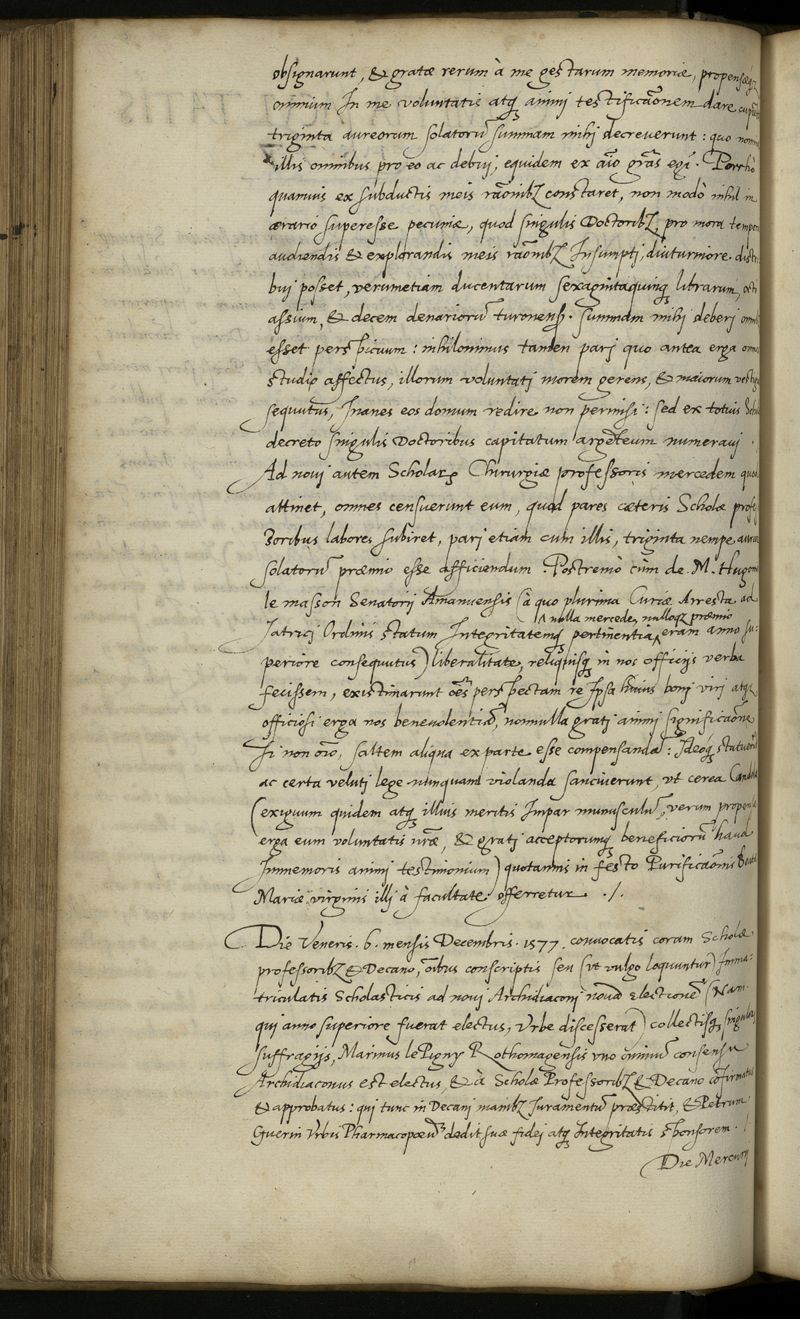 obsignarunt, & gratæ rerum à me gestarum memoriæ, propensæq;
omnium In me voluntatis atq; animi testificaõnem dare
triginta aureorum solatorũ summam mihj decreverunt : quo
illis omnibus pro eo ac debuj, equidem ex aĩo grãs egi. Porrhò
quamuis ex subductis meis rãonibz constaret, non modò nihil in
ærario superesse pecuniæ, quod singulis Doctoribz pro mora
audiendis & explorandis meis rãonibz Insumptj diuturniore
buj posset, verumetiam ducentarum sexagintaquinq; librarum,
assium, & decem denariorũ turonens. summam mihj deberj
esset perspicuum : nihilominus tamen parj quo antea erga
studio affectus, illorum voluntatj morem gerens, & maiorum
sequutus, Inanes eos domum redire non permisi : sed ex totius
decreto singulis Doctoribus capitatum argẽteum numeravj .
Ad novi autem Scholar. Chirurgiæ professoris mercedem quod
attinet, omnes censuerunt eum, quod pares cæteris Scholæ
soribus labores subiret, parj etiam cum illis, triginta nempe
solatorũ præmio esse afficiendum . Postremò cùm de M. Hugonis
le masson Senatorij Amanuensis (à quo plurima Curiæ Arresta ad
nulla mercede, nulloq; præmio
Iatricj Ordinis statum Integritatemq; pertinentia, eram anno su-
periore consequutus) liberalitate, reliquisq; in nos officijs verba
fecissem, existimarunt oẽs perspectam re Ipsa huius bonj virj atq;
officiosi erga nos benevolentiã, nonnulla gratj animj significaõne
si non oĩo, saltem aliqua ex parte esse compensandã : Ideoq;
ac certa velutj lege nunquam violanda sanciverunt, vt cerea
(exiguum quidem atq; illius meritis Impar munusculũ, verum
erga eum voluntatis nr̃æ, & gratj acceptorumq; beneficiorũ haud
Immemoris animi testimonium) quotannis in festo Purificaõnis
Mariæ virginis illj à facultate offerretur. ./.
Die Veneris . 6 . mensis Decembris . 1577 . convocatis coram Scholæ
professoribz & Decano, oĩbus conscriptis seu (vt vulgo loquuntur) Imma-
triculatis Scholasticis ad novi Archidiaconj novã electionẽ (Nam
qui anno superiore fuerat electus, Vrbe discesserat) collectisq; singulorum
suffragijs, Marinus le Pigny Rothomagensis vno omniũ consensu
Archidiaconus est electus, & à Scholæ Professoribz & Decano cõfirmatus
& approbatus : qui tunc in Decani manibz Iuramentũ præstitit, & Petrum
Guerin Vrbis Pharmacopœũ dedit suæ fidej atq; Integritatis sponsorem . /
Die Mercurij